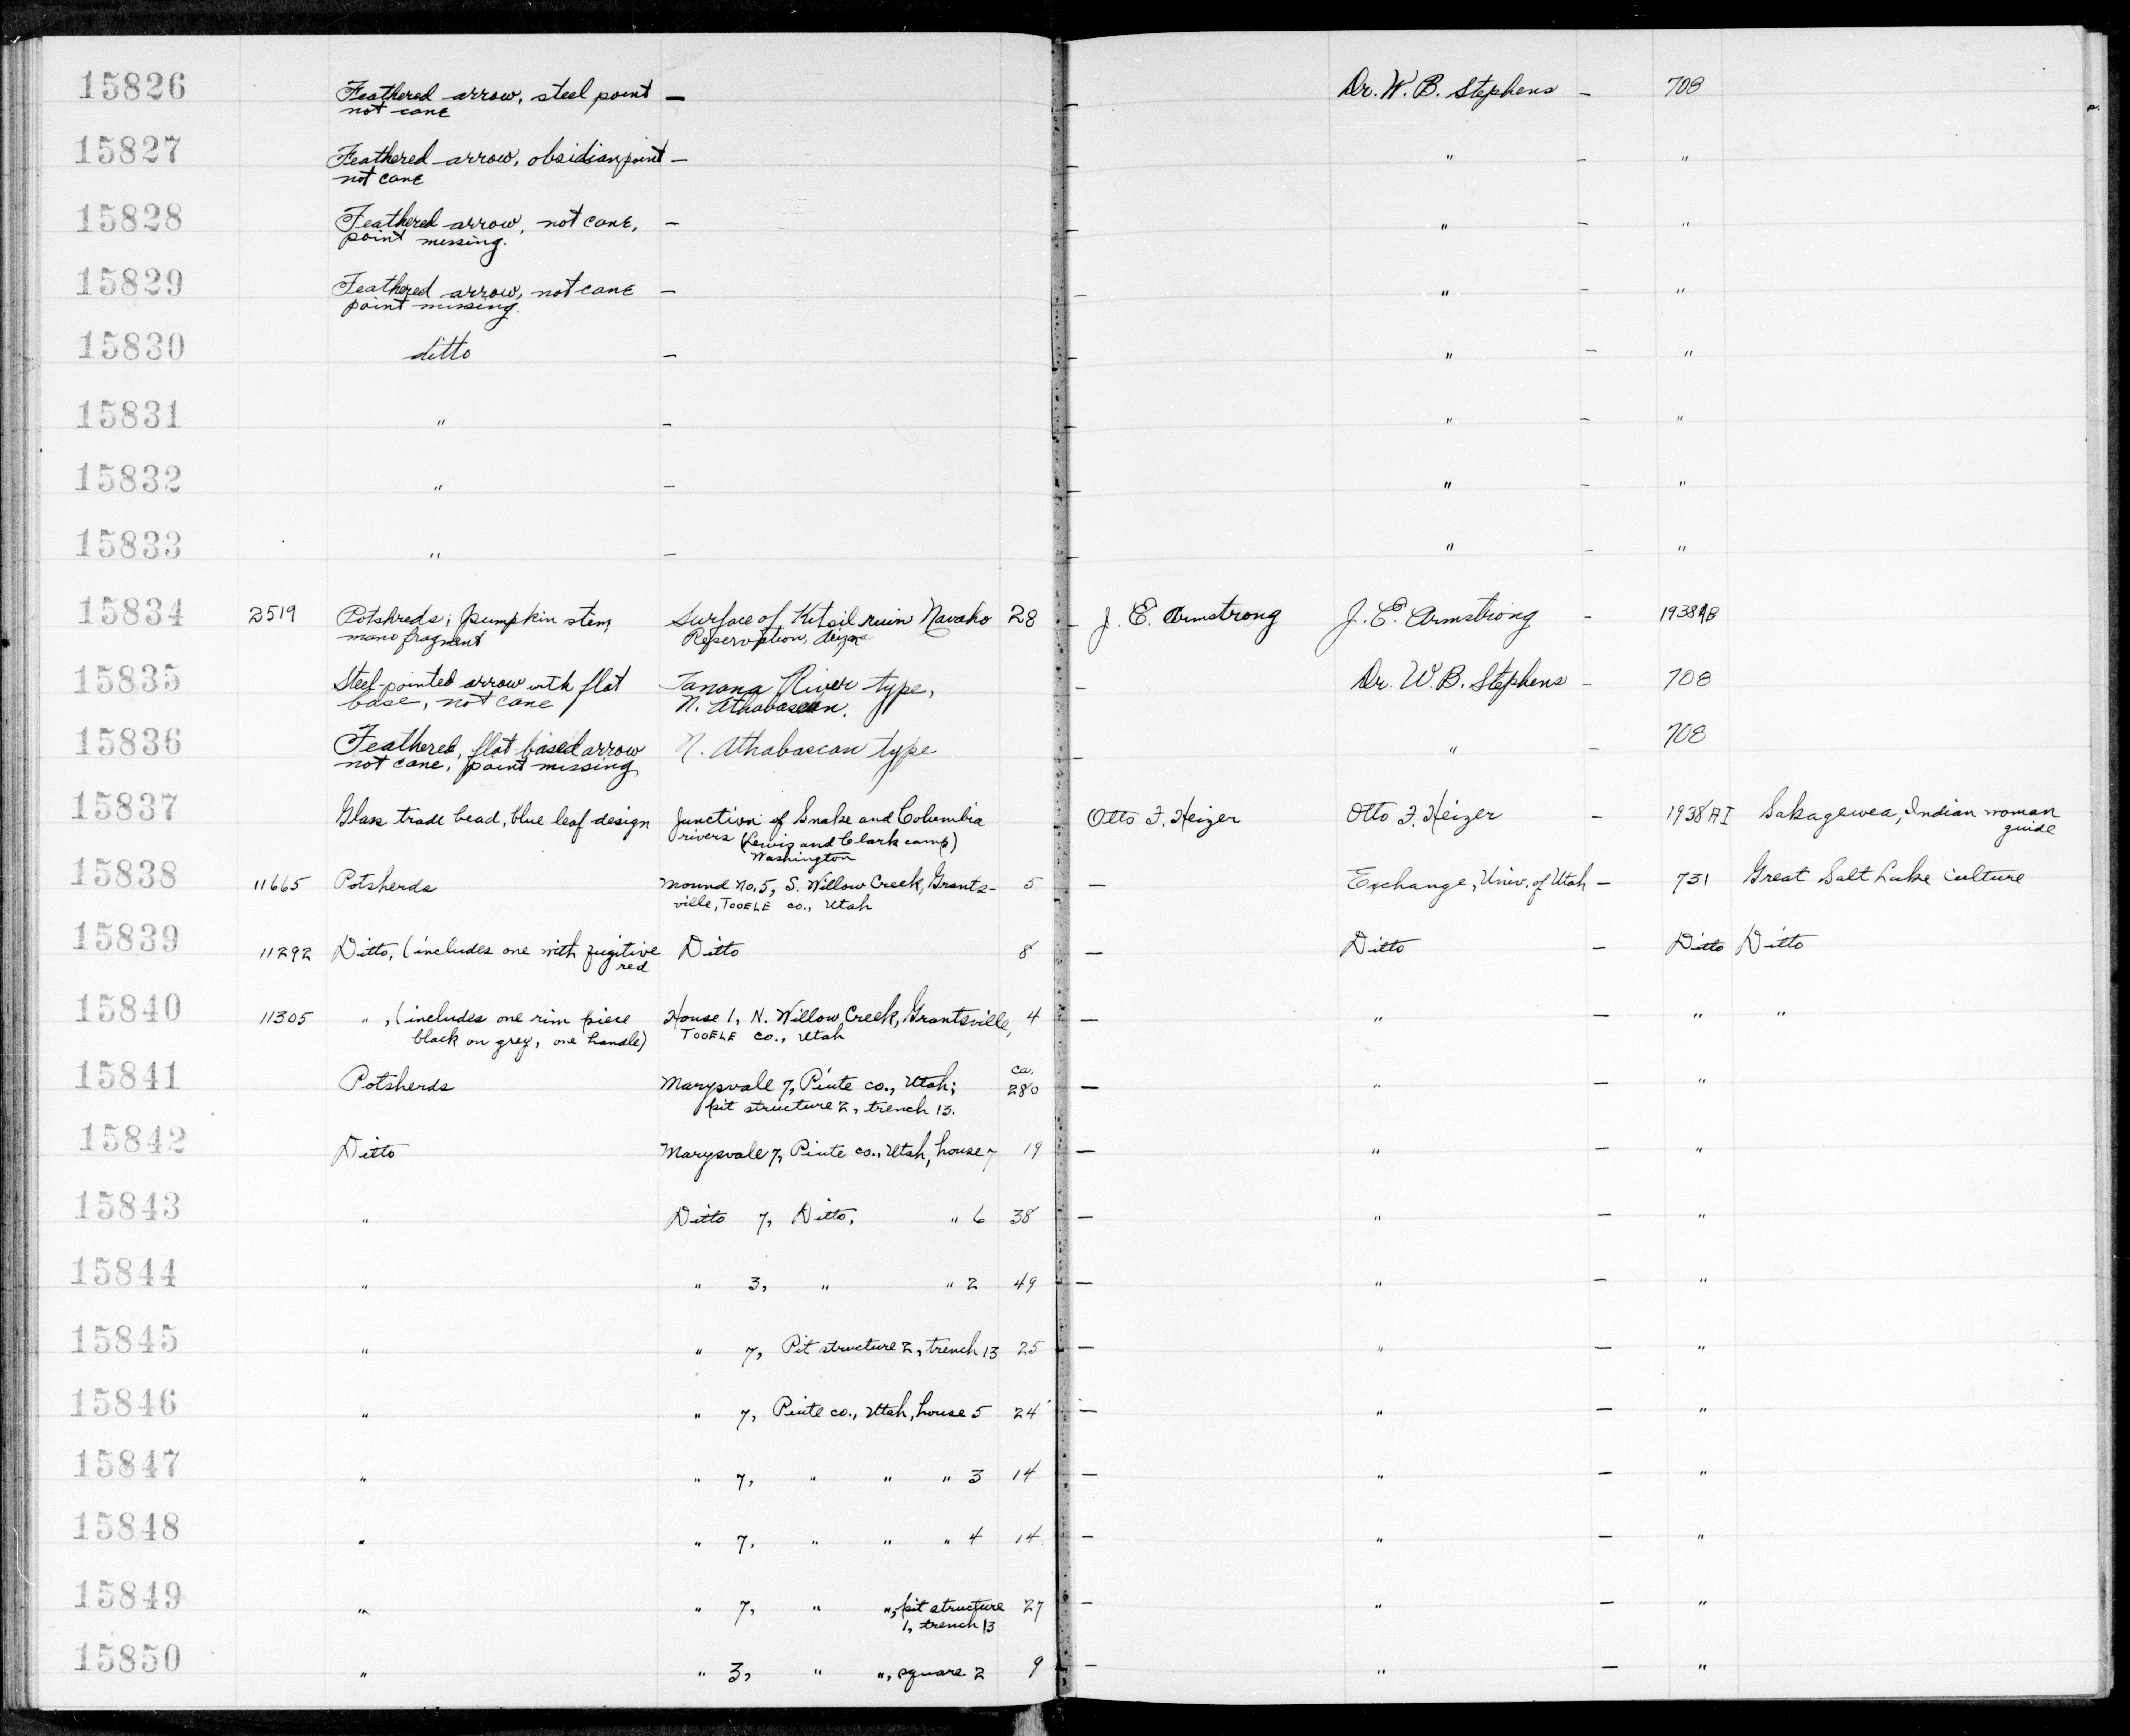 15826 Feathered arrow, steel point — — Dr. W. B. Stephens — 708
not cane
15827 Feathered arrow, obsidian point — — " — "
not cane
15828 Feathered arrow, not cane, — — " — "
point missing.
15829 Feathered arrow, not cane — — " — "
point missing.
15830 ditto — — " — "
15831 " — — " — "
15832 " — — " — "
15833 " — — " — "
15834 2519 Potshreds; pumpkin stem, Surface of Kitsil ruin Navaho 28 — J. E. Armstrong J. E. Armstrong — 1938
mano fragment Reservation,
15835 Steel-pointed arrow with flat Tanana River type, — Dr. W. B. Stephens — 708
base, not cane N. Athabascan.
15836 Feathered, flat based arrow N. Athabascan type — " — 708
not cane, point missing
15837 Glass trade bead, blue leaf design Junction of Snake and Columbia Otto F. Heizer Otto F. Heizer — 1938 AI Sakagewea, Indian woman
rivers (Lewis and Clark camp) guide
Washington
15838 11665 Potsherds Mound No. 5, S. Willow Creek, Grants- 5 — Exchange, Univ. of Utah — 731 Great Salt Lake Culture
ville, TOOELE co., Utah
15839 11292 Ditto, (includes one with fugitive Ditto 8 — Ditto — Ditto Ditto
red
15840 11305 " , (includes one rim piece House 1, N. Willow Creek, Grantsville, 4 — " — " "
black on grey, one handle) TOOELE co., Utah
15841 Potsherds Marysvale 7, Piute co., Utah; ca. 280 — " — "
pit structure 2, trench 13.
15842 Ditto Marysvale 7, Piute co., Utah, house 7 19 — " — "
15843 " Ditto 7, Ditto, " 6 38 — " — "
15844 " " 3, " " 2 49 — " — "
15845 " " 7, Pit structure 2, trench 13 25 — " — "
15846 " " 7, Piute co., Utah, house 5 24 — " — "
15847 " " 7, " " " 3 14 — " — "
15848 " " 7, " " " 4 14 — " — "
15849 " " 7, " ", pit structure 27 — " — "
1, trench 13
15850 " " 3, " ", square 2 9 — " — "